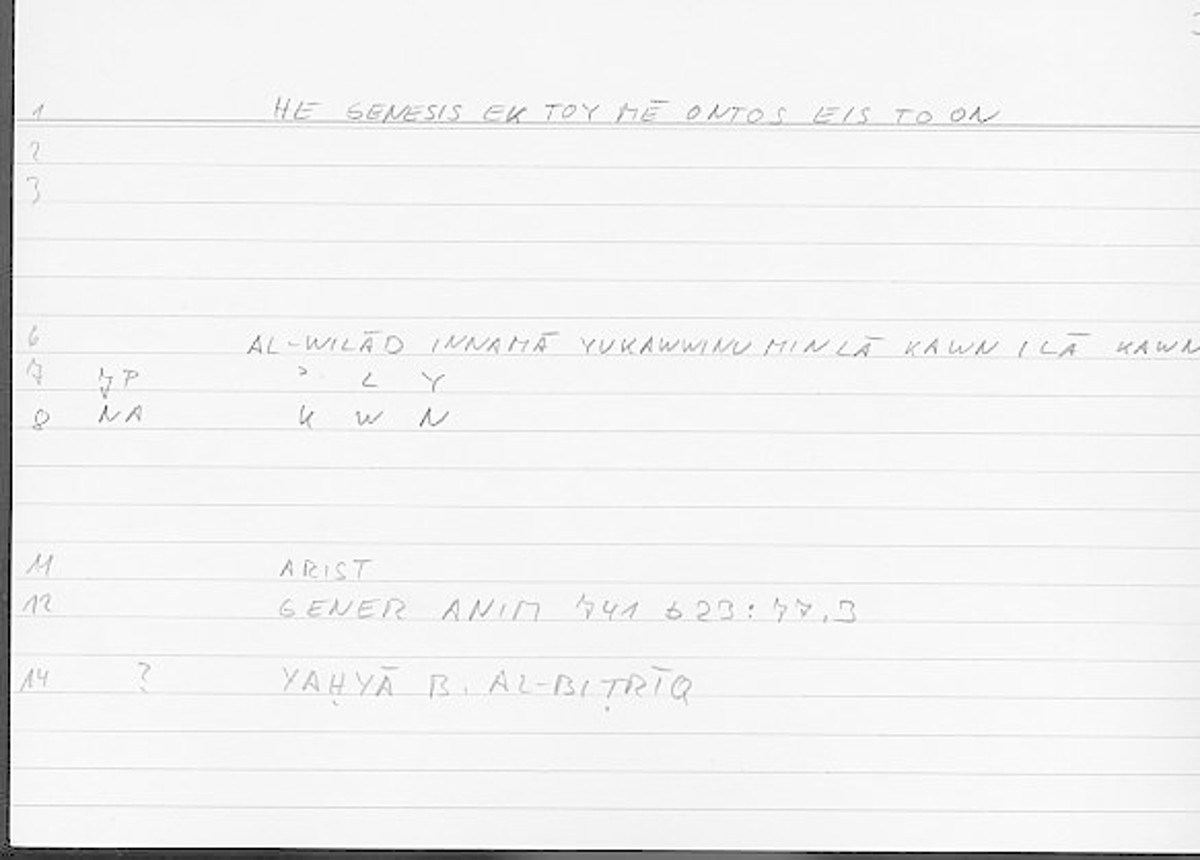 1 HE GENESIS EK TOY MĒ ONTOS EIS TO ON
2
3
6 AL-WILĀD INNAMĀ YUKAWWINU MIN LĀ KAWN ILĀ KAWN
7 JP ʾ L Y
8 NA K W N
11 ARIST
12 GENER ANIM 741 b 23: 77,3
14 ? YAḤYĀ B. AL-BIṬRĪQ